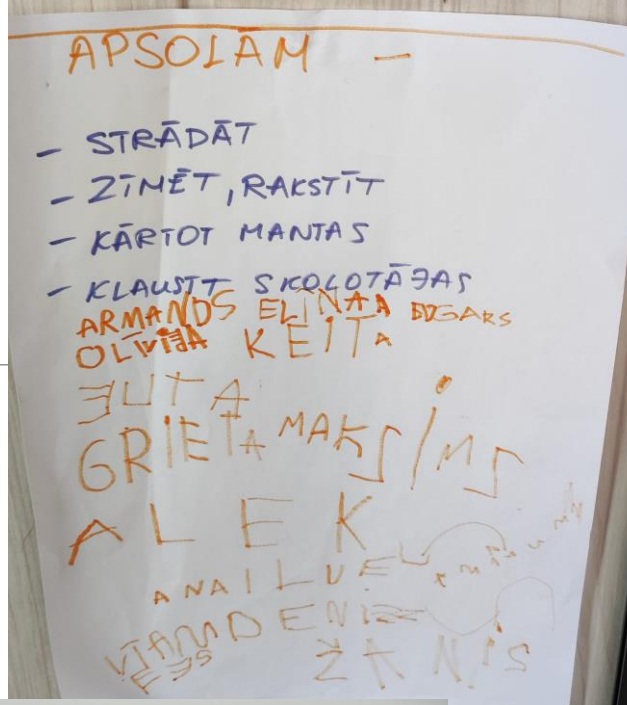 APSOLAM -
- STRĀDĀT
- ZĪMĒT, RAKSTĪT
- KĀRTOT MANTAS
- KLAUSĪT SKOLOTĀJAS
ARMANDS ELĪNAA EDGARS
OLĪVIJA KEITA
JUTA
GRIETA MAKSIMS
ALEK
DENI